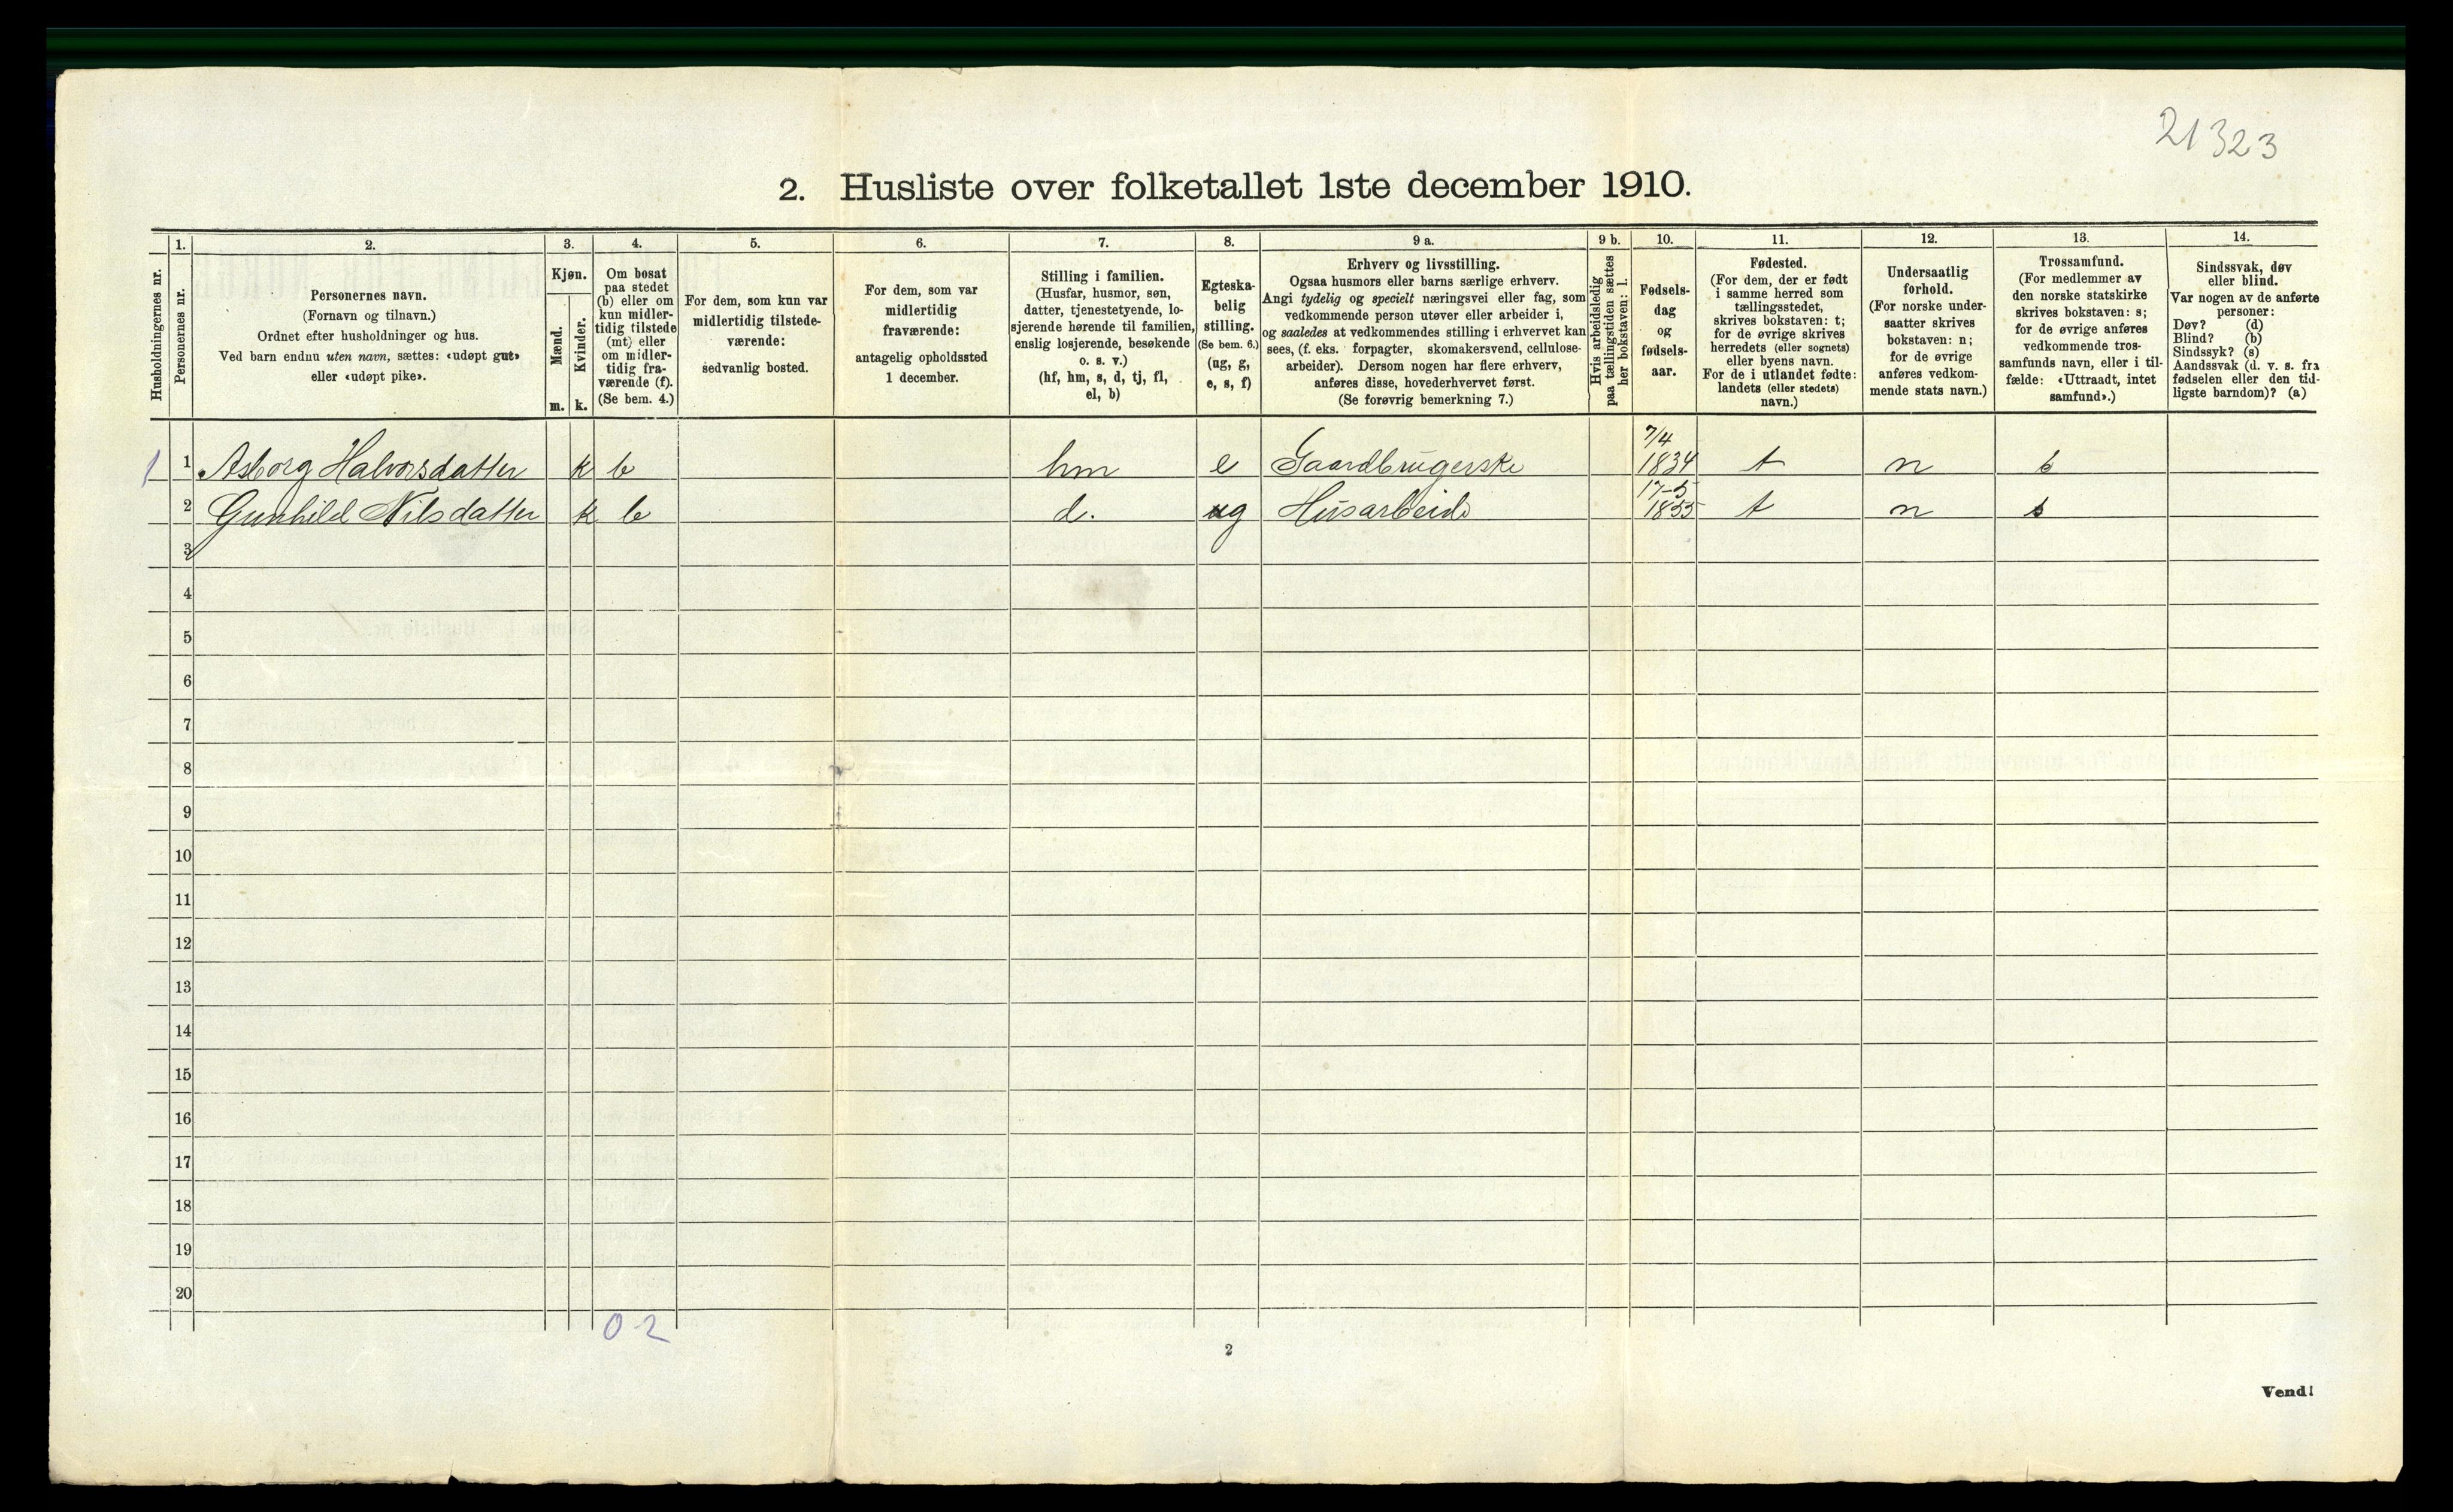 21323
2. Husliste over folketallet 1ste december 1910.
Husholdningernes nr.
1.
Personernes nr.
2.
Personernes navn.
(Fornavn og tilnavn.)
Ordnet efter husholdninger og hus.
Ved barn endnu uten navn, sættes: «udøpt gut»
eller «udøpt pike».
3.
Kjøn.
Mænd.
Kvinder.
m. k.
4.
Om bosat
paa stedet
(b) eller om
kun midler-
tidig tilstede
(mt) eller
om midler-
tidig fra-
værende (f).
(Se bem. 4.)
5.
For dem, som kun var
midlertidig tilstede-
værende:
sedvanlig bosted.
6.
For dem, som var
midlertidig
fraværende:
antagelig opholdssted
1 december.
7.
Stilling i familien.
(Husfar, husmor, søn,
datter, tjenestetyende, lo-
sjerende hørende til familien,
enslig losjerende, besøkende
o. s. v.)
(hf, hm, s, d, tj, fl,
el, b)
8.
Egteska-
belig
stilling.
(Se bem. 6.)
(ug, g,
e, s, f)
9 a.
Erhverv og livsstilling.
Ogsaa husmors eller barns særlige erhverv.
Angi tydelig og specielt næringsvei eller fag, som
vedkommende person utøver eller arbeider i,
og saaledes at vedkommendes stilling i erhvervet kan
sees, (f. eks. forpagter, skomakersvend, cellulose-
arbeider). Dersom nogen har flere erhverv,
anføres disse, hovederhvervet først.
(Se forøvrig bemerkning 7.)
9 b.
Hvis arbeidsledig
paa tællingstiden sættes
her bokstaven: l.
10.
Fødsels-
dag
og
fødsels-
aar.
11.
Fødested.
(For dem, der er født
i samme herred som
tællingsstedet,
skrives bokstaven: t;
for de øvrige skrives
herredets (eller sognets)
eller byens navn.
For de i utlandet fødte:
landets (eller stedets)
navn.)
12.
Undersaatlig
forhold.
(For norske under-
saatter skrives
bokstaven: n;
for de øvrige
anføres vedkom-
mende stats navn.)
13.
Trossamfund.
(For medlemmer av
den norske statskirke
skrives bokstaven: s;
for de øvrige anføres
vedkommende tros-
samfunds navn, eller i til-
fælde: «Uttraadt, intet
samfund».)
14.
Sindssvak, døv
eller blind.
Var nogen av de anførte
personer:
Døv? (d)
Blind? (b)
Sindssyk? (s)
Aandssvak (d. v. s. fra
fødselen eller den tid-
ligste barndom)? (a)
1 1 Asborg Halvorsdatter k b hm e Gaardbrugerske 7/4 1834 t n s
2 Gunhild Nilsdatter k b d. ug Husarbeide 17-5 1855 t n s
3
4
5
6
7
8
9
10
11
12
13
14
15
16
17
18
19
20
0-2
2
Vend!